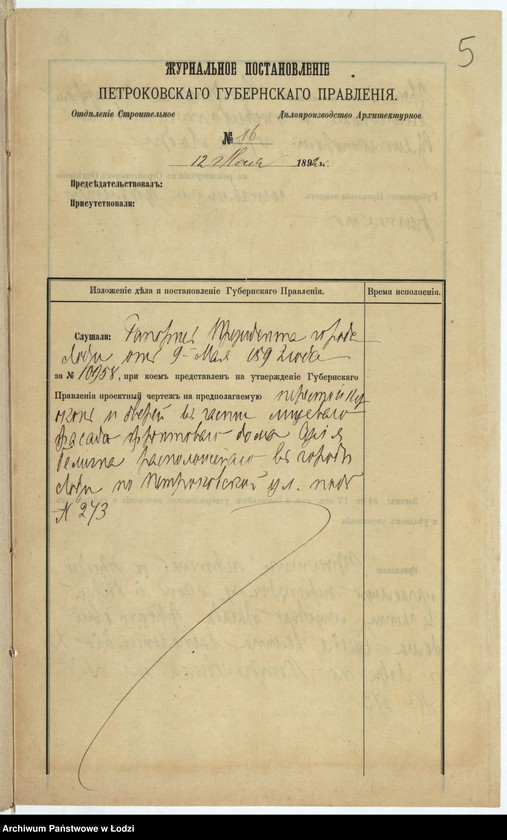 5
ЖУРНАЛЬНОЕ ПОСТАНОВЛЕНІЕ
ПЕТРОКОВСКАГО ГУБЕРНСКАГО ПРАВЛЕНІЯ.
Отдѣленіе Строительное Дѣлопроизводство Архитектурное.
№ 16
12 1892 г.
Предсѣдательствовалъ:
Присутствовали:
Изложеніе дѣла и постановленіе Губернскаго Правленія. Время исполненія.
Слушали: Рапортъ Президента города
Лодзи отъ 9 Мая 1892 года
за № 10958, при коемъ представленъ на утвержденіе Губернскаго
Правленія проектный чертежъ на предполагаемую
оконъ и дверей въ части лицеваго
фасада фронтоваго дома
расположеннаго въ городѣ
Лодзи по Петроковской ул. подъ
№ 273
Archiwum Państwowe w Łodzi